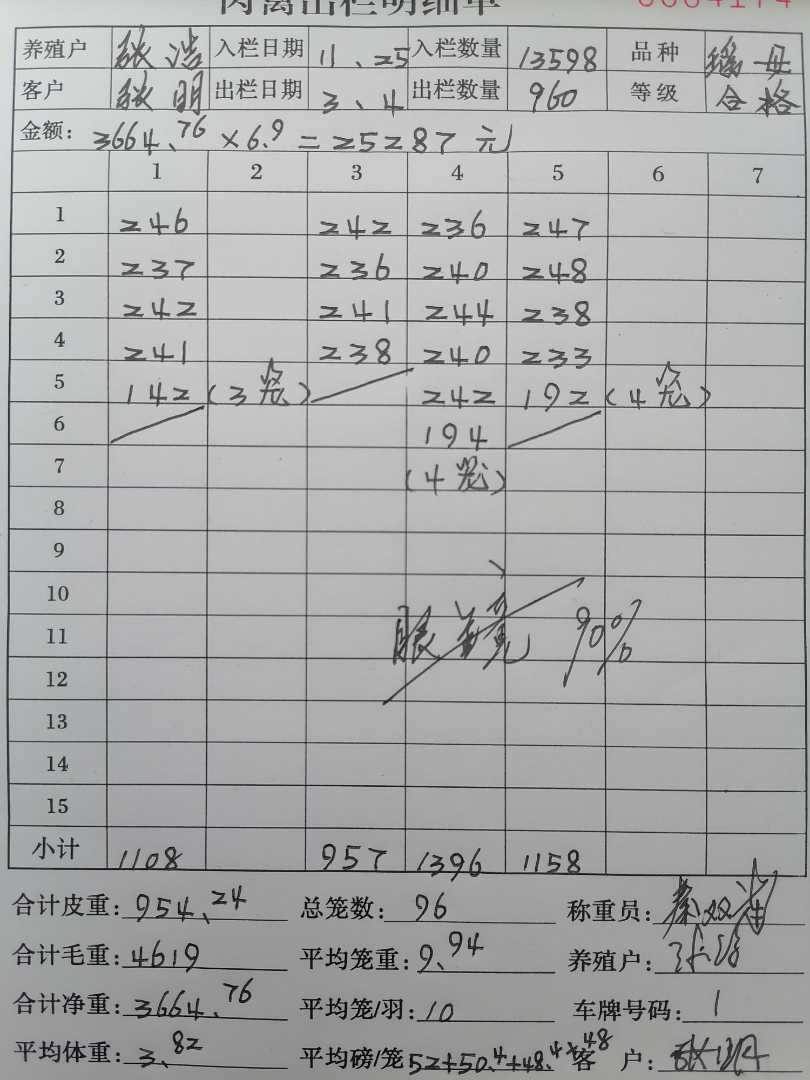 肉禽出栏明细单 0004174
养殖户 张浩 入栏日期 11、25 入栏数量 13598 品种
客户 张明 出栏日期 3、4 出栏数量 960 等级 合格
金额: 3664、76 × 6.9 = 25287 元
1 2 3 4 5 6 7
1 246 242 236 247
2 237 236 240 248
3 242 241 244 238
4 241 238 240 233
5 142 (3笼) 242 192 (4笼)
6 194
7 (4笼)
8
9
10
11 90%
12
13
14
15
小计 1108 957 1396 1158
合计皮重: 954、24 总笼数: 96 称重员:
合计毛重: 4619 平均笼重: 9、94 养殖户:
合计净重: 3664、76 平均笼/羽: 10 车牌号码: 1
平均体重: 3、82 平均磅/笼 52+50.4+48.4+48 客户: